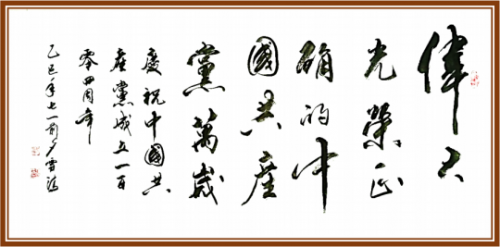 偉大
光榮正
确的中
國共産
黨萬歲
慶祝中國共
産黨成立一百
零四周年
乙巳年七一前夕雪